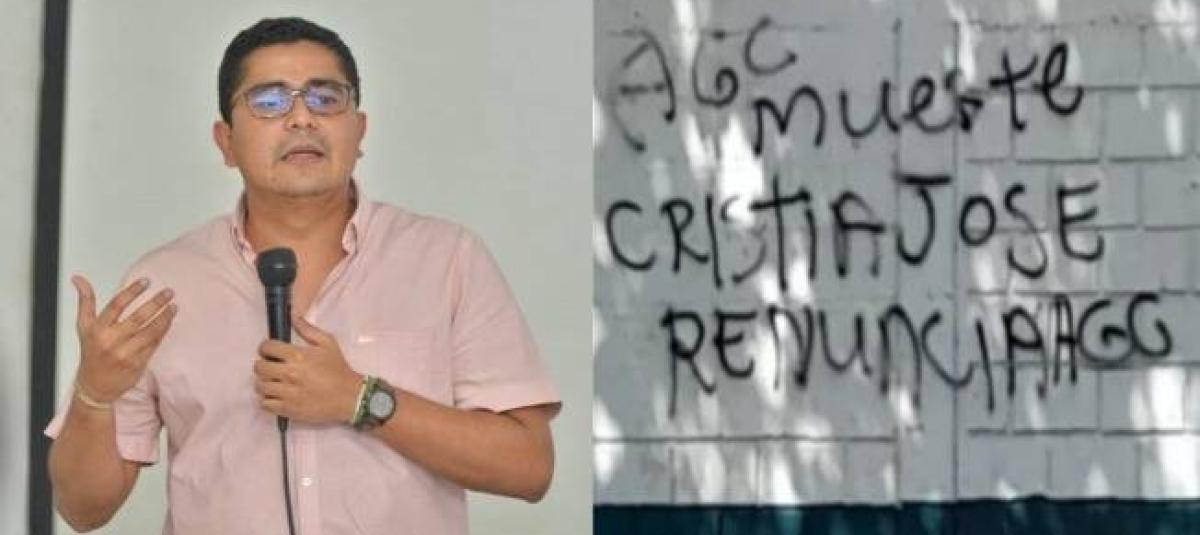 AGC
mueste
CRISTIAJOSE
RENUNCIAAGG